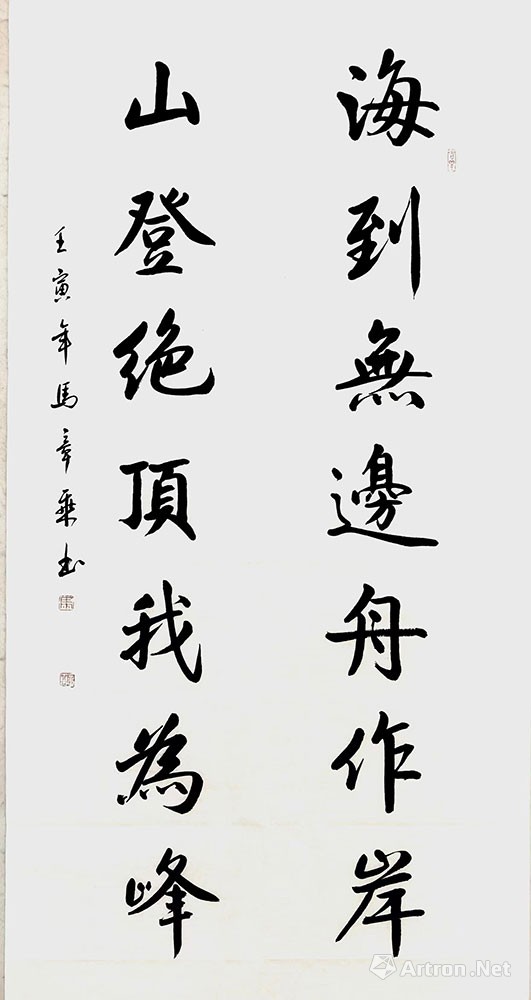 海到無邊舟作岸
山登绝頂我為峰
壬寅年馬章乘书
Artron.Net